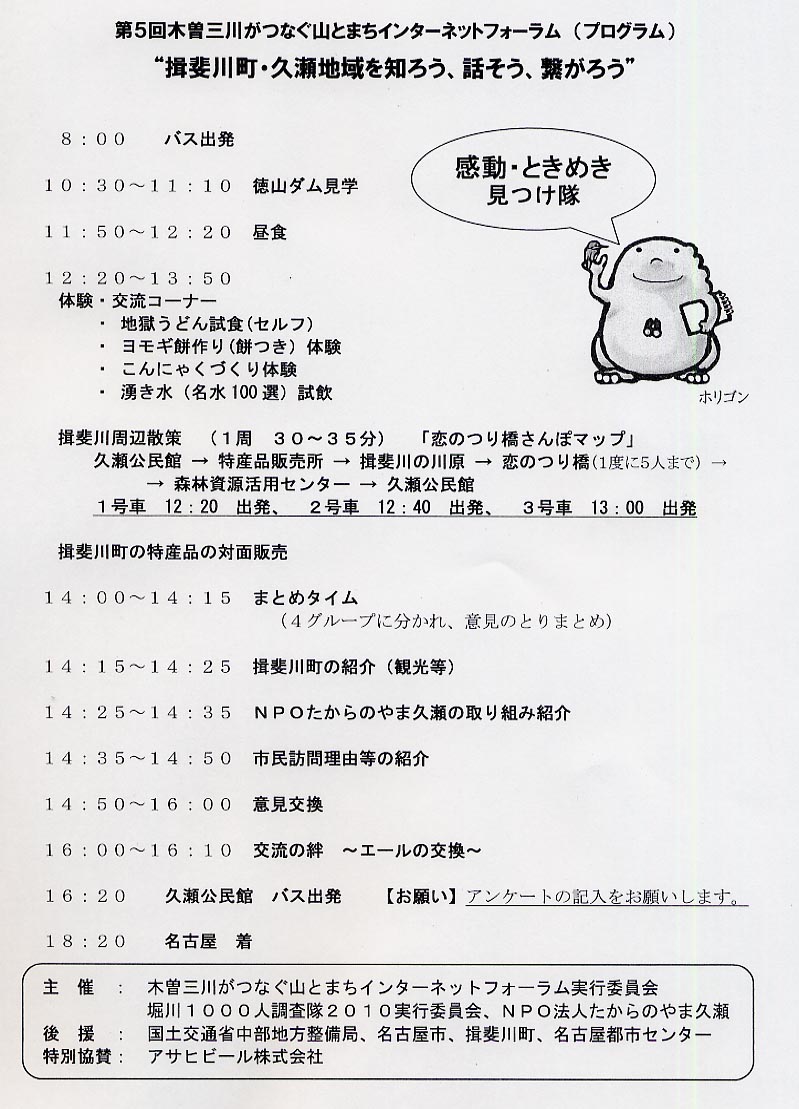 第5回木曽三川がつなぐ山とまちインターネットフォーラム（プログラム）
“揖斐川町・久瀬地域を知ろう、話そう、繋がろう”
８：００　バス出発
感動・ときめき
見つけ隊
１０：３０～１１：１０　徳山ダム見学
１１：５０～１２：２０　昼食
１２：２０～１３：５０
体験・交流コーナー
・ 地獄うどん試食（セルフ）
・ ヨモギ餅作り（餅つき）体験
・ こんにゃくづくり体験
・ 湧き水（名水100選）試飲
ホリゴン
揖斐川周辺散策　（１周　３０～３５分）　「恋のつり橋さんぽマップ」
久瀬公民館 → 特産品販売所 → 揖斐川の川原 → 恋のつり橋（1度に5人まで） →
→ 森林資源活用センター → 久瀬公民館
１号車　12：20　出発、　２号車　12：40　出発、　３号車　13：00　出発
揖斐川町の特産品の対面販売
１４：００～１４：１５　まとめタイム
（４グループに分かれ、意見のとりまとめ）
１４：１５～１４：２５　揖斐川町の紹介（観光等）
１４：２５～１４：３５　ＮＰＯたからのやま久瀬の取り組み紹介
１４：３５～１４：５０　市民訪問理由等の紹介
１４：５０～１６：００　意見交換
１６：００～１６：１０　交流の絆　～エールの交換～
１６：２０　久瀬公民館　バス出発　【お願い】アンケートの記入をお願いします。
１８：２０　名古屋　着
主　催　：　木曽三川がつなぐ山とまちインターネットフォーラム実行委員会
堀川１０００人調査隊２０１０実行委員会、ＮＰＯ法人たからのやま久瀬
後　援　：　国土交通省中部地方整備局、名古屋市、揖斐川町、名古屋都市センター
特別協賛：　アサヒビール株式会社